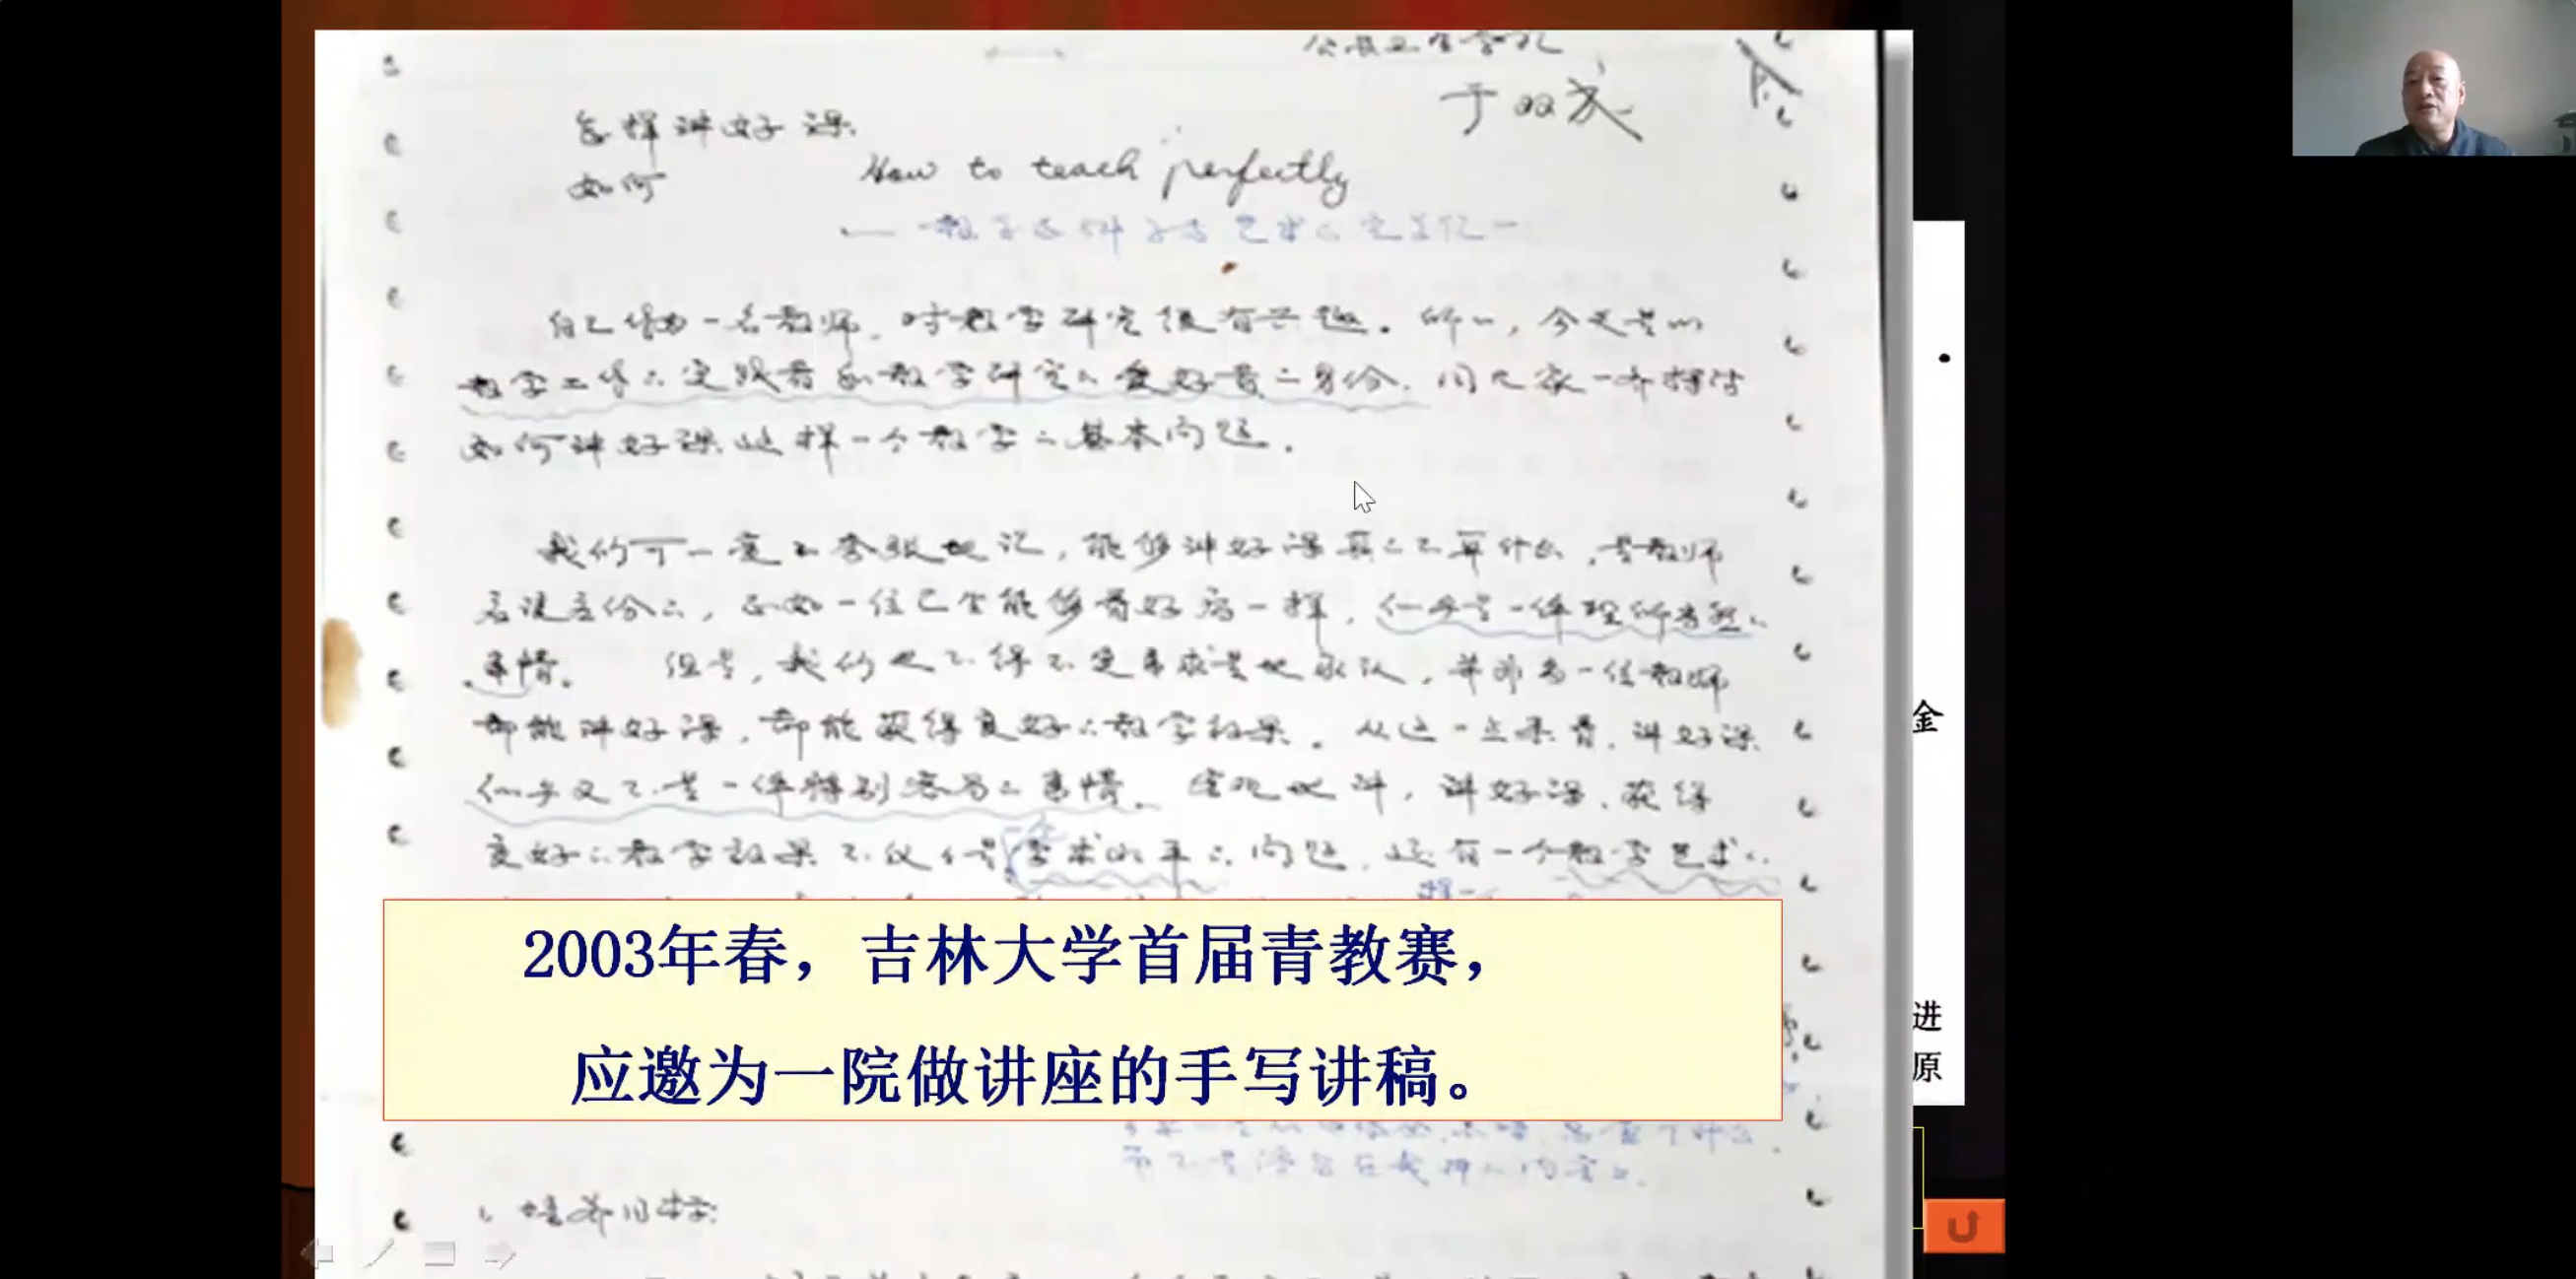 公共卫生学院
于双成
怎样讲好课
如何
How to teach perfectly
自己作为一名教师，对教学研究很有兴趣。所以，今天是以
教学工作的实践者和教学研究的爱好者的身份，同大家一齐探讨
如何讲好课这样一个教学的基本问题。
我们可一点不夸张地说，能够讲好课真的不算什么，是教师
应该应份的，正如一位医生能够看好病一样，似乎是一件理所当然的
事情。但是，我们也不得不实事求是地承认，并非每一位教师
都能讲好课，都能获得良好的教学效果。从这一点来看，讲好课
似乎又不是一件特别容易的事情。客观地讲，讲好课、获得
良好的教学效果不仅仅是学术水平的问题，还有一个教学艺术的
2003年春，吉林大学首届青教赛，
应邀为一院做讲座的手写讲稿。
培养目标:
金
进
原